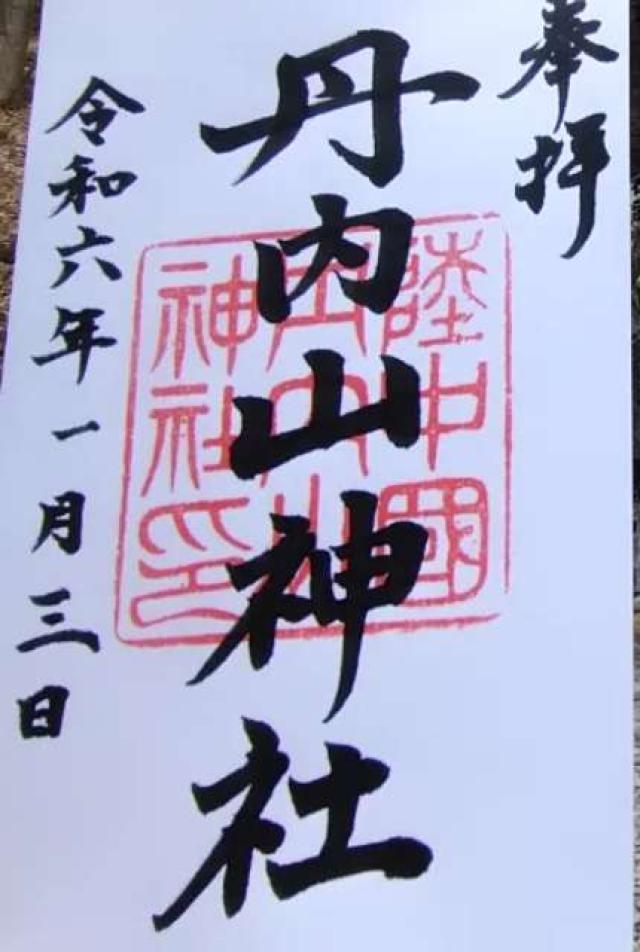 奉拝
丹内山神社
陸中國
丹内山
神社印
令和六年一月三日